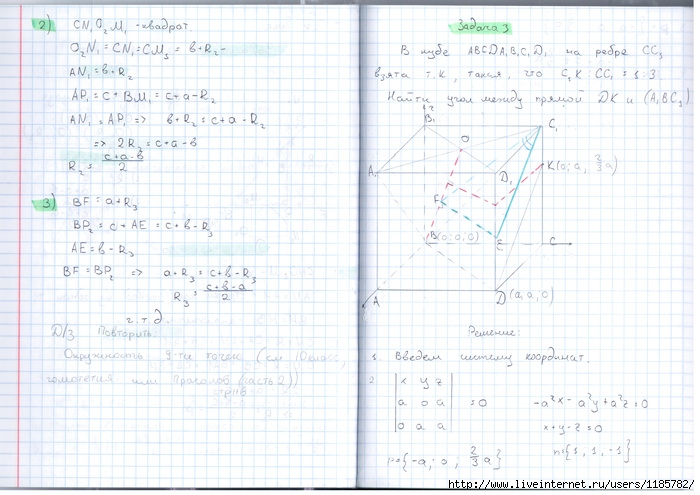 2) CN₁O₂M₁ - квадрат.
O₂N₁ = CN₁ = CM₃ = b + R₂ -
AN₁ = b + R₂
AP₁ = c + BM₁ = c + a - R₂
AN₁ = AP₁ => b + R₂ = c + a - R₂
=> 2R₂ = c + a - b
R₂ = (c + a - b)/2
3) BF = a + R₃
BP₂ = c + AE = c + b - R₃
AE = b - R₃
BF = BP₂ => a + R₃ = c + b - R₃
R₃ = (c + b - a)/2
ч.т.д
D/з Повторить.
Окружность 9-ти точек (см 10 класс,
гомотетия или Праголов (часть 2))
Задача 3
В кубе ABCDA₁B₁C₁D₁ на ребре CC₃
взята т. K, такая, что C₁K : CC₁ = 1:3.
Найти угол между прямой DK и (A₁BC₁)
z
B₁
C₁
O
A₁
D₁
K(0; a, 2/3 a)
F
B(0;0;0)
E
C
A
D(a, a, 0)
Решение:
1. Введем систему координат.
2 | x y z |
| a 0 a | = 0
| 0 a a |
-a²x - a²y + a²z = 0
x + y - z = 0
n = {1, 1, -1}
p = {-a; 0; 2/3 a}
http://www.liveinternet.ru/users/1185782/